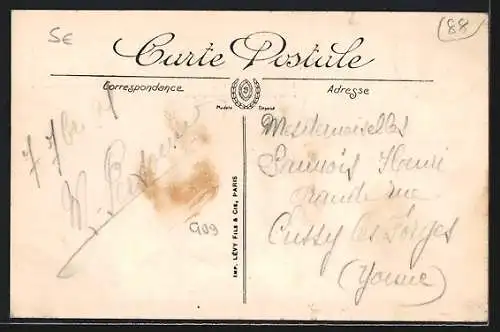 SE
88
Carte Postale
Correspondance
Adresse
Modèle Déposé
7 7bre
M.
G09
IMP. LÉVY FILS & CIE, PARIS
Mesdemoiselles
Henri
Grande rue
Cussy les Forges
(Yonne)